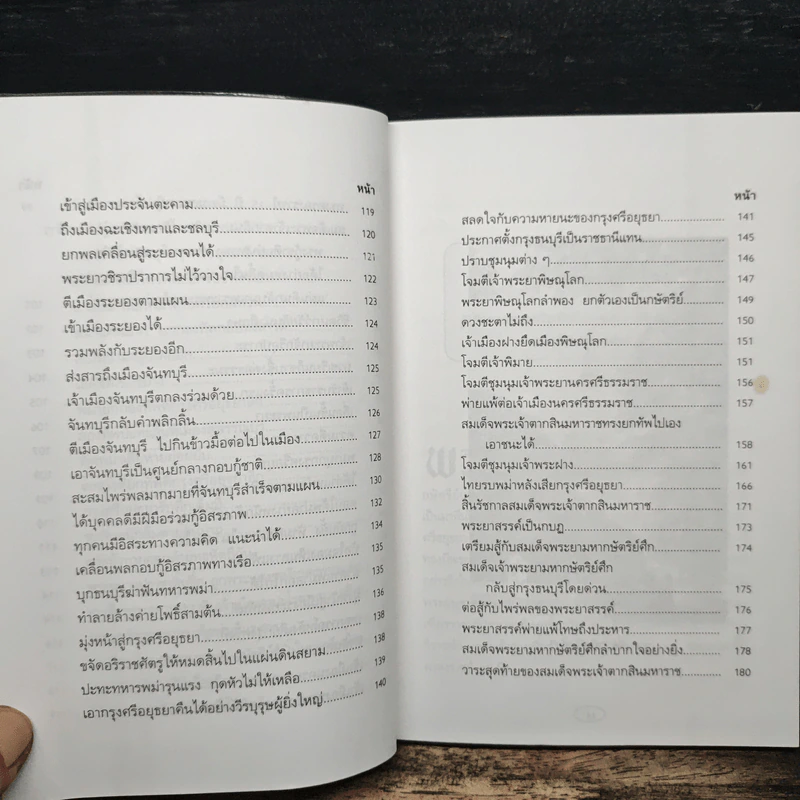 หน้า
เข้าสู่เมืองประจันตะคาม 119
ถึงเมืองฉะเชิงเทราและชลบุรี 120
ยกพลเคลื่อนสู่ระยองจนได้ 121
พระยาวชิราปราการไม่ไว้วางใจ 122
ตีเมืองระยองตามแผน 123
เข้าเมืองระยองได้ 124
รวมพลังกับระยองอีก 124
ส่งสารถึงเมืองจันทบุรี 125
เจ้าเมืองจันทบุรีตกลงร่วมด้วย 125
จันทบุรีกลับคำพลิกลิ้น 126
ตีเมืองจันทบุรี ไปกินข้าวมื้อต่อไปในเมือง 127
เอาจันทบุรีเป็นศูนย์กลางกอบกู้ชาติ 128
สะสมไพร่พลมากมายที่จันทบุรีสำเร็จตามแผน 130
ได้บุคคลดีมีฝีมือร่วมกู้อิสรภาพ 132
ทุกคนมีอิสระทางความคิด แนะนำได้ 134
เคลื่อนพลกอบกู้อิสรภาพทางเรือ 135
บุกธนบุรีฆ่าฟันทหารพม่า 135
ทำลายล้างค่ายโพธิ์สามต้น 136
มุ่งหน้าสู่กรุงศรีอยุธยา 138
ขจัดอริราชศัตรูให้หมดสิ้นไปในแผ่นดินสยาม 138
ปะทะทหารพม่ารุนแรง กุดหัวไม่ให้เหลือ 139
เอากรุงศรีอยุธยาคืนได้อย่างวีรบุรุษผู้ยิ่งใหญ่ 140
หน้า
สลดใจกับความหายนะของกรุงศรีอยุธยา 141
ประกาศตั้งกรุงธนบุรีเป็นราชธานีแทน 145
ปราบชุมนุมต่าง ๆ 146
โจมตีเจ้าพระยาพิษณุโลก 147
พระยาพิษณุโลกลำพอง ยกตัวเองเป็นกษัตริย์ 149
ดวงชะตาไม่ถึง 150
เจ้าเมืองฝางยึดเมืองพิษณุโลก 151
โจมตีเจ้าพิมาย 151
โจมตีชุมนุมเจ้าพระยานครศรีธรรมราช 156
พ่ายแพ้ต่อเจ้าเมืองนครศรีธรรมราช 157
สมเด็จพระเจ้าตากสินมหาราชทรงยกทัพไปเอง
เอาชนะได้ 158
โจมตีชุมนุมเจ้าพระฝาง 161
ไทยรบพม่าหลังเสียกรุงศรีอยุธยา 166
สิ้นรัชกาลสมเด็จพระเจ้าตากสินมหาราช 171
พระยาสรรค์เป็นกบฏ 173
เตรียมสู้กับสมเด็จพระยามหากษัตริย์ศึก 174
สมเด็จเจ้าพระยามหากษัตริย์ศึก
กลับสู่กรุงธนบุรีโดยด่วน 175
ต่อสู้กับไพร่พลของพระยาสรรค์ 176
พระยาสรรค์พ่ายแพ้โทษถึงประหาร 177
สมเด็จพระยามหากษัตริย์ศึกลำบากใจอย่างยิ่ง 178
วาระสุดท้ายของสมเด็จพระเจ้าตากสินมหาราช 180